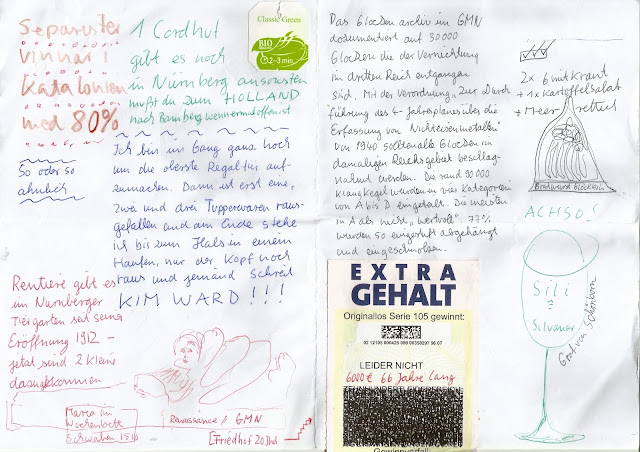 Separatster
vinhar i
Katalonien
med 80%
So oder so
ähnlich
1 Cordhut
gibt es noch
in Nürnberg ansonsten
mußt du zum HOLLAND
nach Bamberg wenn er mal offen ist
Classic Green
BIO
2-3 min.
Ich bin im Gang ganz hoch
um die oberste Regaltür auf-
zumachen. Dann ist erst eine,
zwei und drei Tupperwaren raus-
gefallen und am Ende stehe
ich bis zum Hals in einem
Haufen, nur der Kopf noch
raus und jemand schreit
KIM WARD!!!
Rentiere gibt es
im Nürnberger
Tiergarten seit seiner
Eröffnung 1912 -
jetzt sind 2 kleine
dazugekommen
Maria im
Wochenbett
Schwaben 1510
Renaissance / GMN
[Friedhof 20]
Das Glockenarchiv im GMN
dokumentiert auf 30000
Glocken die der Vernichtung
im dritten Reich entgangen
sind. Mit der Verordnung "zur Durch
führung des 4-Jahresplanes über die
Erfassung von Nichteisenmetallen"
von 1940 sollten alle Glocken im
damaligen Reichsgebiet beschlag-
nahmt werden. Die rund 90000
Klangkegel wurden in vier Kategorien
von A bis D eingeteilt. Die meisten
in A als nicht "wertvoll". 77%
wurden so eingestuft abgehängt
und eingeschmolzen.
2x 6 mit Kraut
+ 1x Kartoffelsalat
+ Meerrettich
Bratwurst Glöcklein
ACHSO!
Sili
=
Silvaner
Graf von Schönborn
EXTRA
GEHALT
Originallos Serie 105 gewinnt:
LEIDER NICHT
6000 € 66 Jahre lang